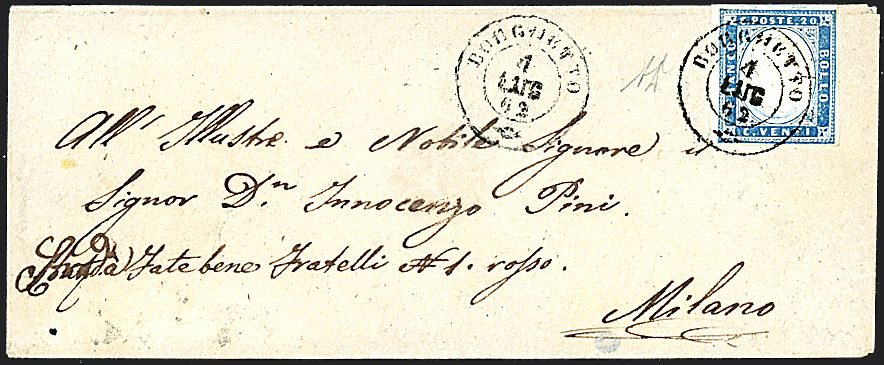 BORGHETTO
4
LUG
62
C. POSTE. 20
FRANCO
BOLLO
C. VENTI
BORGHETTO
4
LUG
62
All' Illustre e Nobile Signore il
Signor Dn. Innocenzo Pini.
Fatebene Fratelli N 1. rosso.
Milano